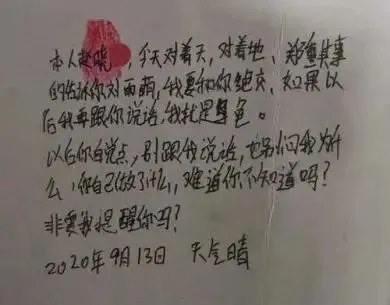 本人赵晓 ，今天对着天，对着地、郑重其事
的告诉你刘雨萌，我要和你绝交、如果以
后我再跟你说话，我就是 色。
以后你自觉点，别跟我说话，也别问我为什
么，你自己做了什么，难道你不知道吗？
非要我提醒你吗？
2020年9月13日 天气晴